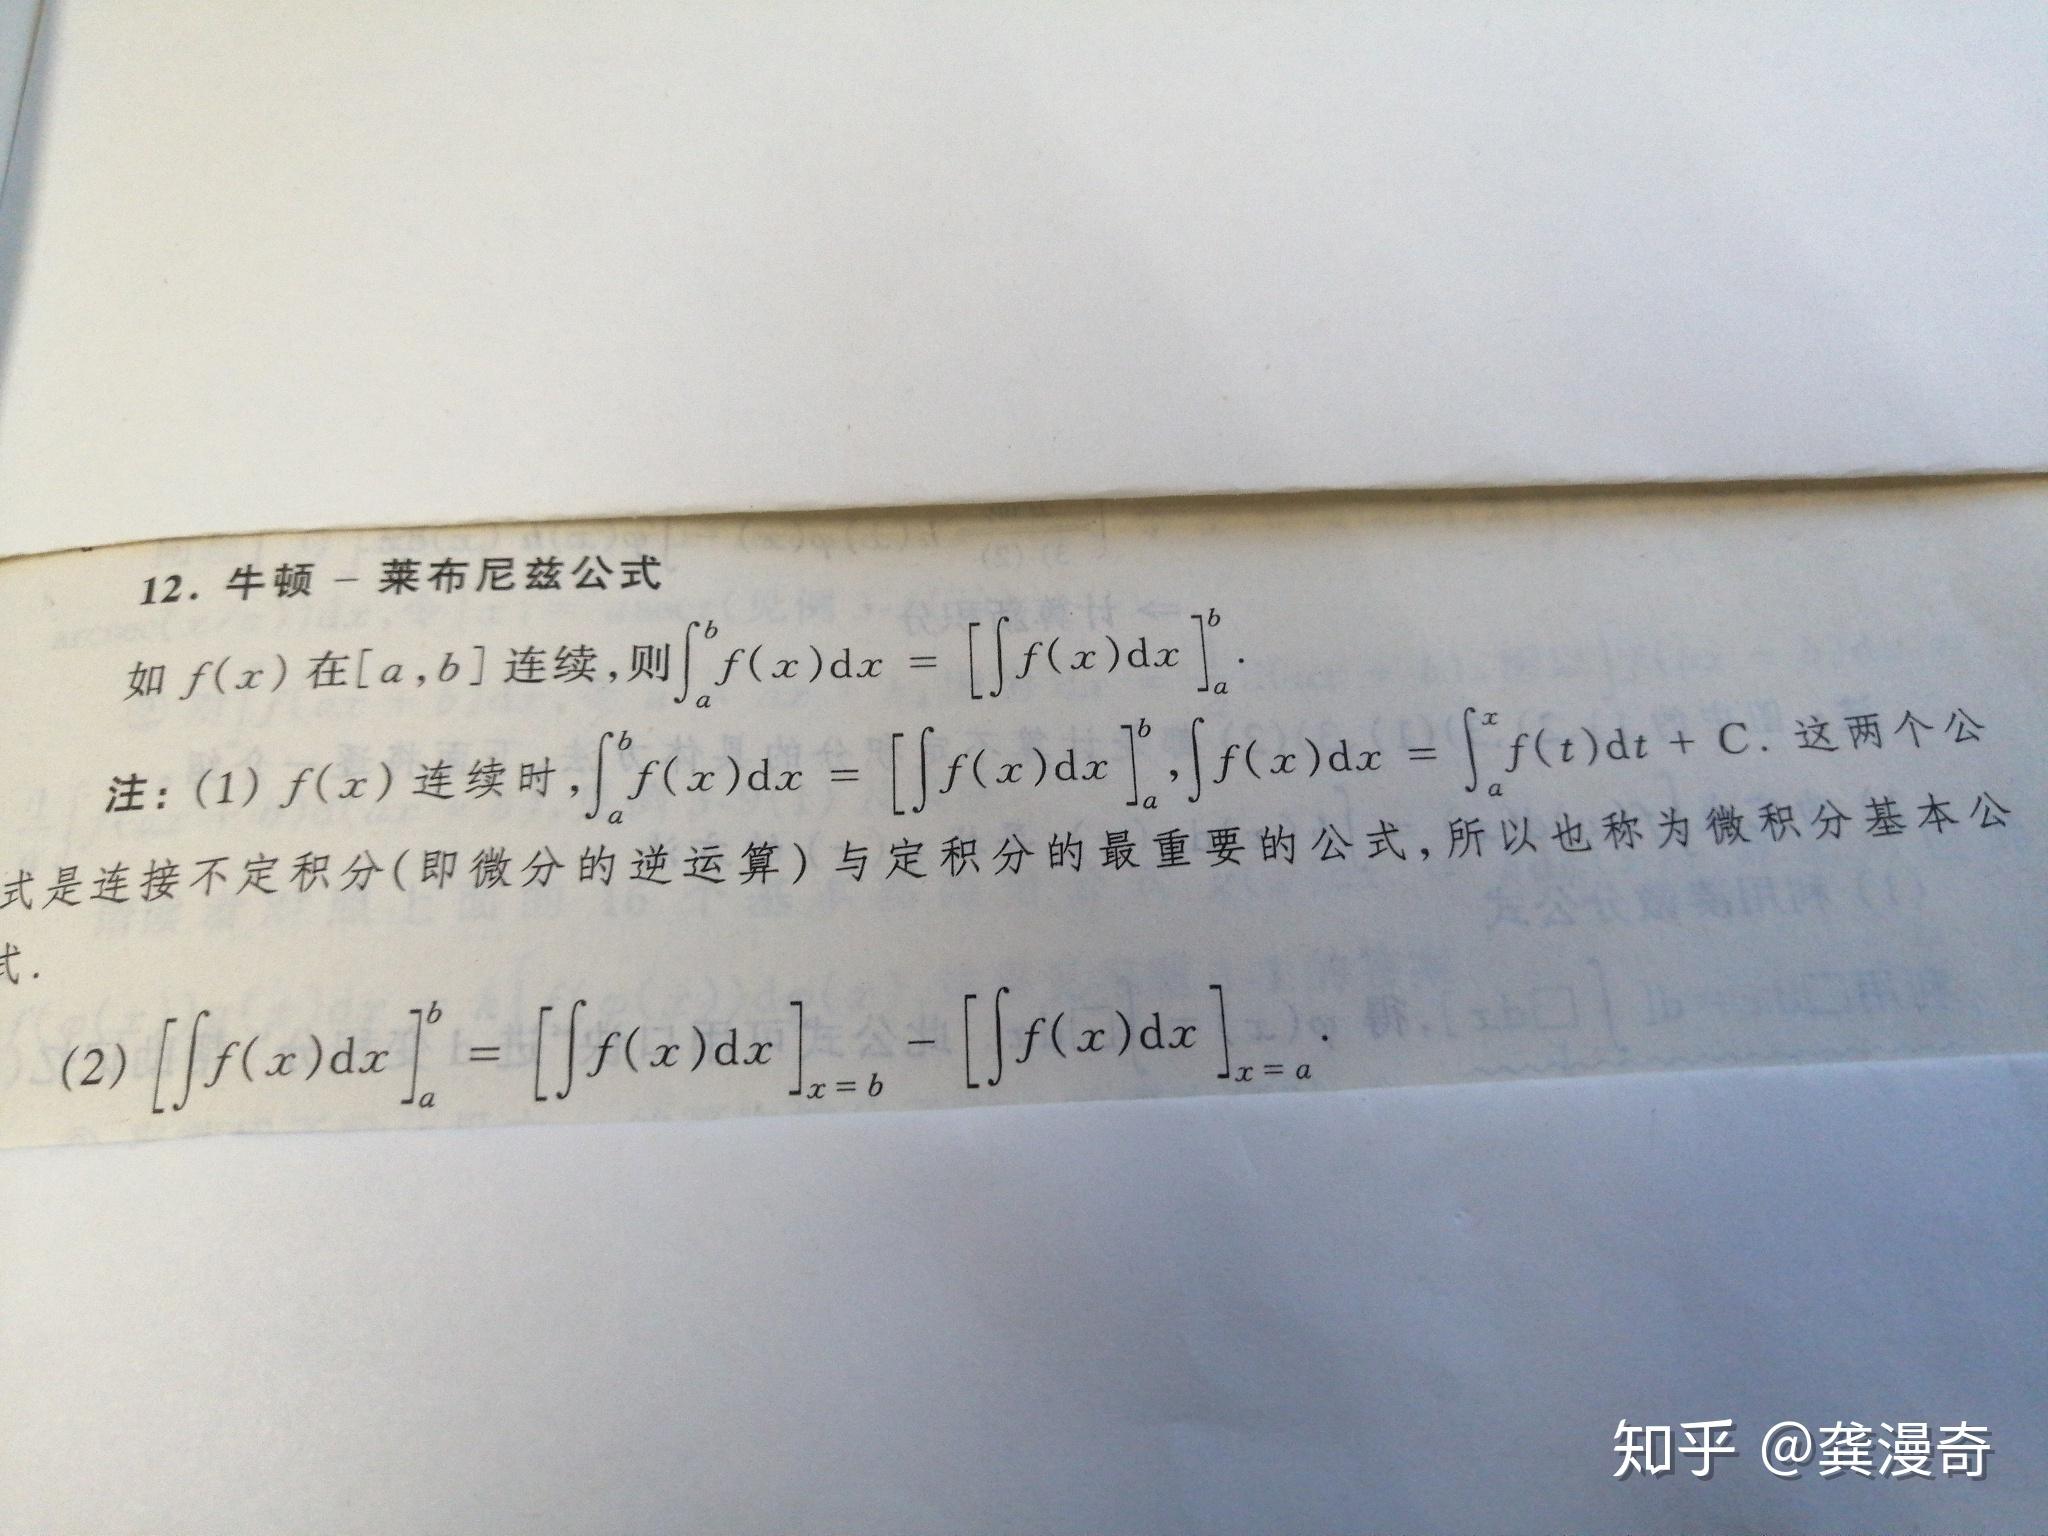 12. 牛顿 – 莱布尼兹公式
如 f(x) 在[a,b] 连续,则∫_a^b f(x)dx = [∫f(x)dx]_a^b.
注: (1) f(x) 连续时,∫_a^b f(x)dx = [∫f(x)dx]_a^b,∫f(x)dx = ∫_a^x f(t)dt + C. 这两个公
式是连接不定积分(即微分的逆运算)与定积分的最重要的公式,所以也称为微积分基本公
式.
(2) [∫f(x)dx]_a^b = [∫f(x)dx]_{x=b} − [∫f(x)dx]_{x=a}.
知乎 @龚漫奇